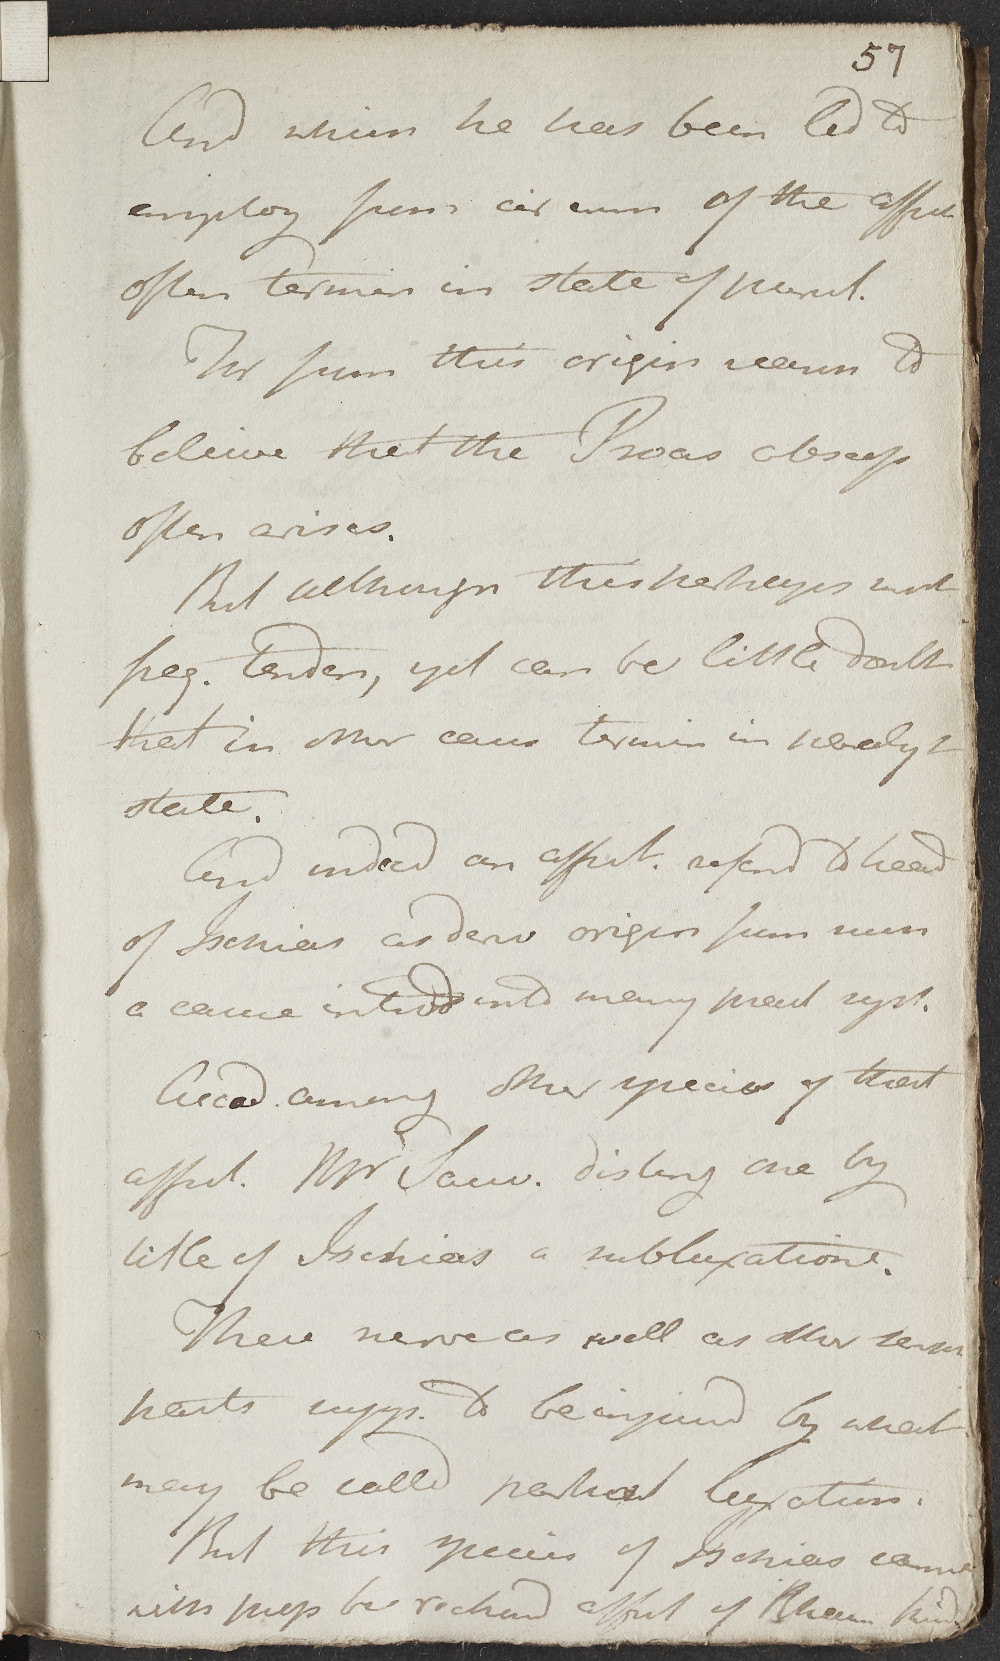 57
And whin he has been led to
employ from circum of the affect
often termin in state of purul.
For from this origin reason to
believe that the Psoas abscess
often arises.
But although this perhaps most
freq. tenden, yet can be little doubt
that in other cases termin in paralyt
state.
And indeed an affect. referd to head
of Ischias as deriv origin from
a cause introd into many pract syst.
Accord. among other species of that
affect. Mr Sauv. disting one by
title of Ischias a subluxatione.
There nerve as well as other sensib
parts supps. to be injurd by what
may be calld partial luxation.
But this species of Ischias cannot
with prop be reckond affect of Rheum kind